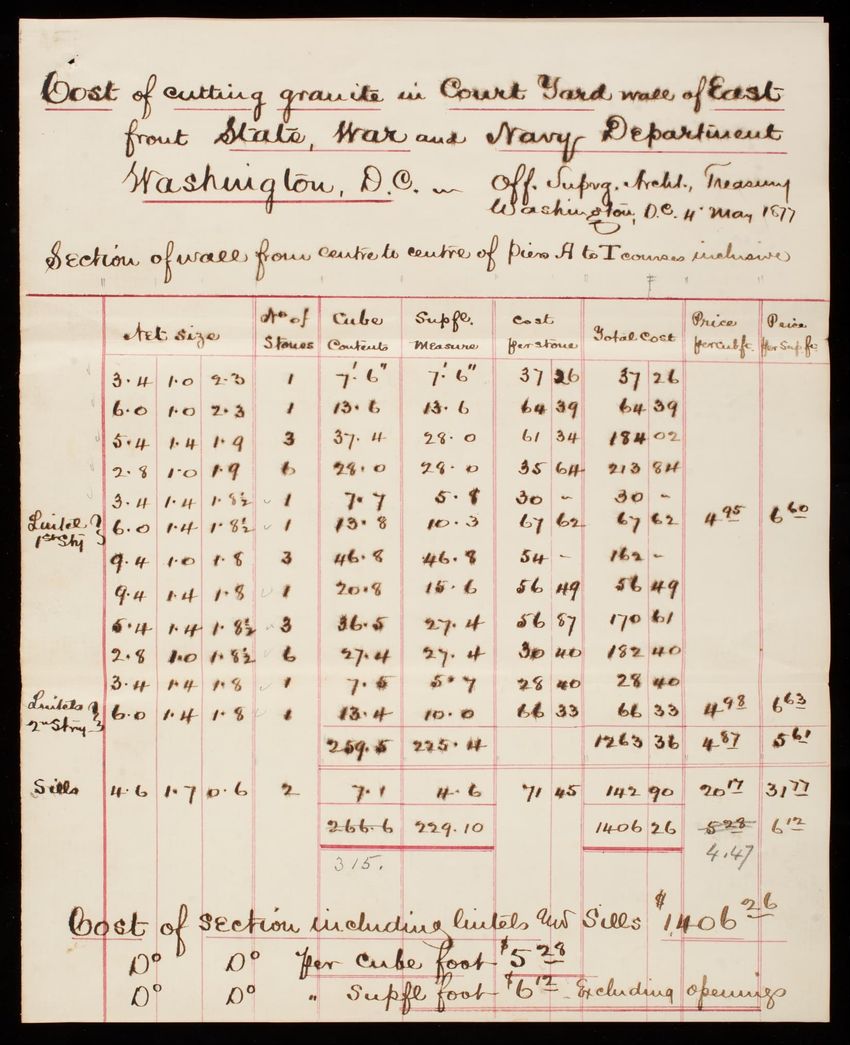 Cost of cutting granite in Court Yard wall of East
front State, War and Navy Department
Washington, D.C.
Off. Supvg. Archt., Treasury
Washington, D.C. 4 May 1877
Section of wall from centre to centre of piers A to I courses inclusive
Net Size | No of Stones | Cube Contents | Supfl. Measure | Cost per stone | Total Cost | Price per cub ft. | Price per Sup. ft.
3.4 1.0 2.3 1 7'.6" 7'.6" 37 26 37 26
6.0 1.0 2.3 1 13.6 13.6 64 39 64 39
5.4 1.4 1.9 3 37.4 28.0 61 34 184 02
2.8 1.0 1.9 6 28.0 28.0 35 64 213 84
3.4 1.4 1.8½ 1 7.7 5.8 30 - 30 -
Lintel 1st Sty 6.0 1.4 1.8½ 1 13.8 10.3 67 62 67 62 4 95 6 60
9.4 1.0 1.8 3 46.8 46.8 54 - 162 -
9.4 1.4 1.8 1 20.8 15.6 56 49 56 49
5.4 1.4 1.8½ 3 36.5 27.4 56 87 170 61
2.8 1.0 1.8½ 6 27.4 27.4 30 40 182 40
3.4 1.4 1.8 1 7.5 5.7 28 40 28 40
Lintels 2nd Stry 6.0 1.4 1.8 1 13.4 10.0 66 33 66 33 4 98 6 63
259.5 225.4 1263 36 4 87 5 61
Sills 4.6 1.7 0.6 2 7.1 4.6 71 45 142 90 20 17 31 77
266.6 229.10 1406 26 5 28 6 12
315. 4.47
Cost of section including lintels and Sills $1,406 26
Do Do per cube foot $5 28
Do Do " Supfl foot $6 12 Excluding openings